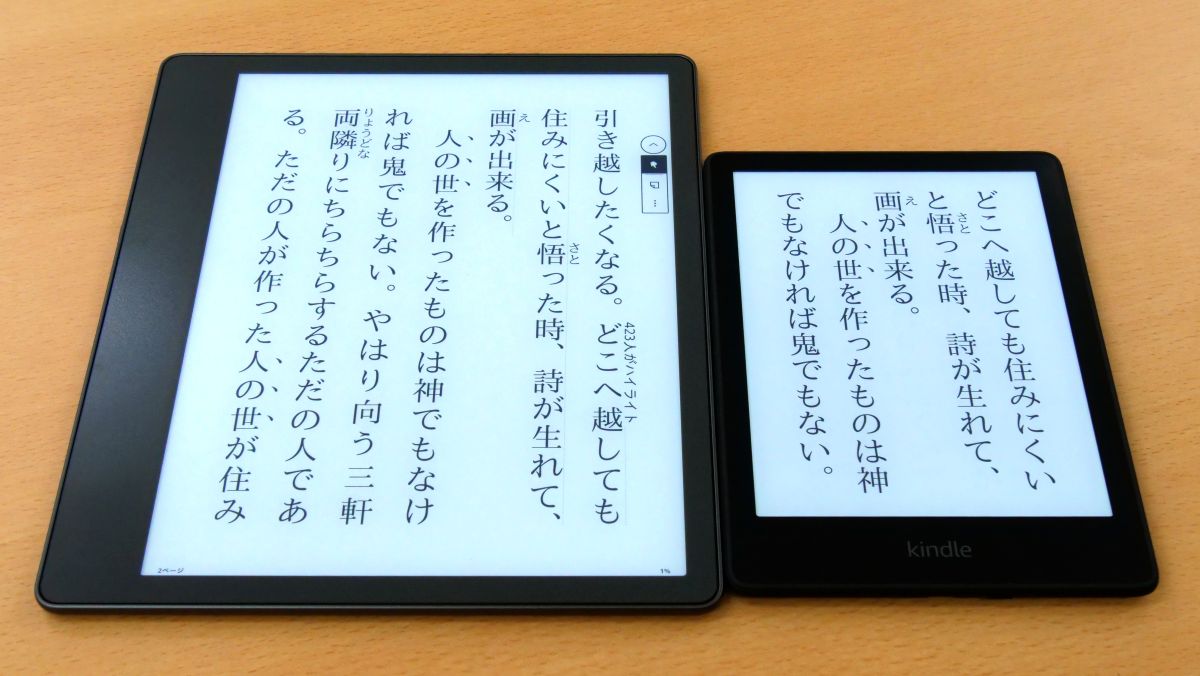 引き越したくなる。どこへ越しても
423人がハイライト
住みにくいと悟った時、詩が生れて、
さと
画が出来る。
え
人の世を作ったものは神でもなけ
れば鬼でもない。やはり向う三軒
両隣りにちらちらするただの人であ
りょうどな
る。ただの人が作った人の世が住み
2ページ
1%
どこへ越しても住みにくい
と悟った時、詩が生れて、
さと
画が出来る。
え
人の世を作ったものは神
でもなければ鬼でもない。
kindle